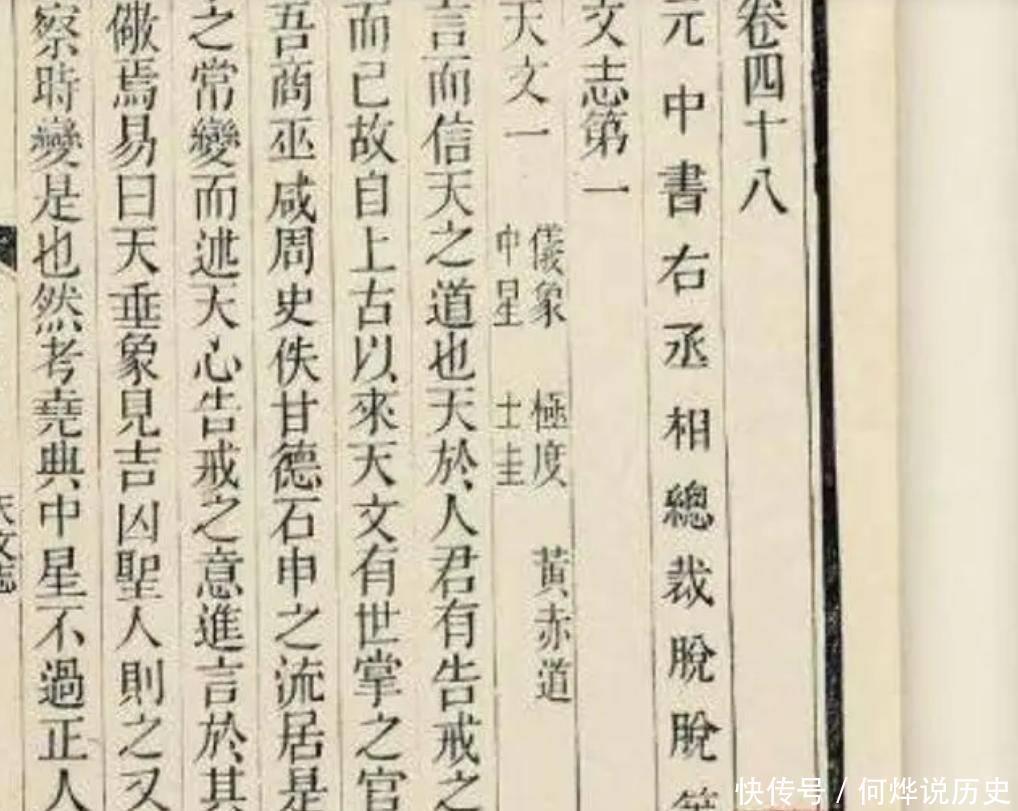 卷四十八
元中書右丞相總裁脫脫
文志第一
天文一
儀象 極度 黃赤道
中星 土圭
言而信天之道也天於人君有告戒之
而已故自上古以來天文有世掌之官
吾商巫咸周史佚甘德石申之流居是
之常變而述天心告戒之意進言於其
儆焉易曰天垂象見吉凶聖人則之又
察時變是也然考堯典中星不過正人
天文志
快传号 / 何烨说历史